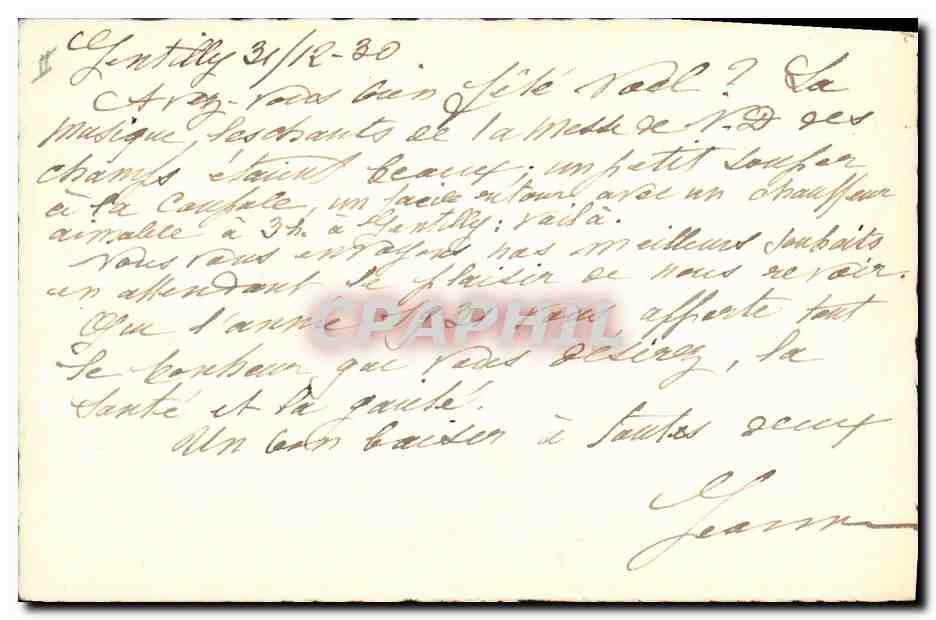 Gentilly 31/12-30
Avez-vous bien fêté Noël ? La
musique, les chants de la messe de N.D des
champs étaient beaux ; un petit souper
à la Coupole, un facile retour avec un chauffeur
aimable à 3h. à Gentilly ; voilà.
Nous vous envoyons nos meilleurs souhaits
en attendant le plaisir de nous revoir.
Que l'année 1931 vous apporte tout
le bonheur que vous désirez, la
santé et la gaieté.
Un bon baiser à toutes deux
Jeanne
CPAPHIL